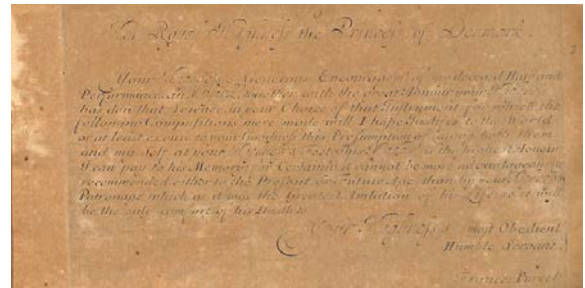 Her Royal Highness the Princess of Denmark.
Your Highness's Generous Encouragement of my deceas'd Husband's
Performances in Musick, together with the great Honour your Highness
has don that Science in your Choice of that Instrument for which the
following Compositions were made will I hope Justifie to the World
or at least excuse to your Goodness this Presumption of Laying both them
and my self at your Highness's Feet. This is the highest Honour
I can pay to his Memory; for Certainly it cannot be more advantageously
recommended either to the Present or Future Age than by your
Patronage which as it was the Greatest Ambition of his Life so it will
be the only comfort of his Death to
Your Highness's most Obedient
Humble Servant
Frances Purcell